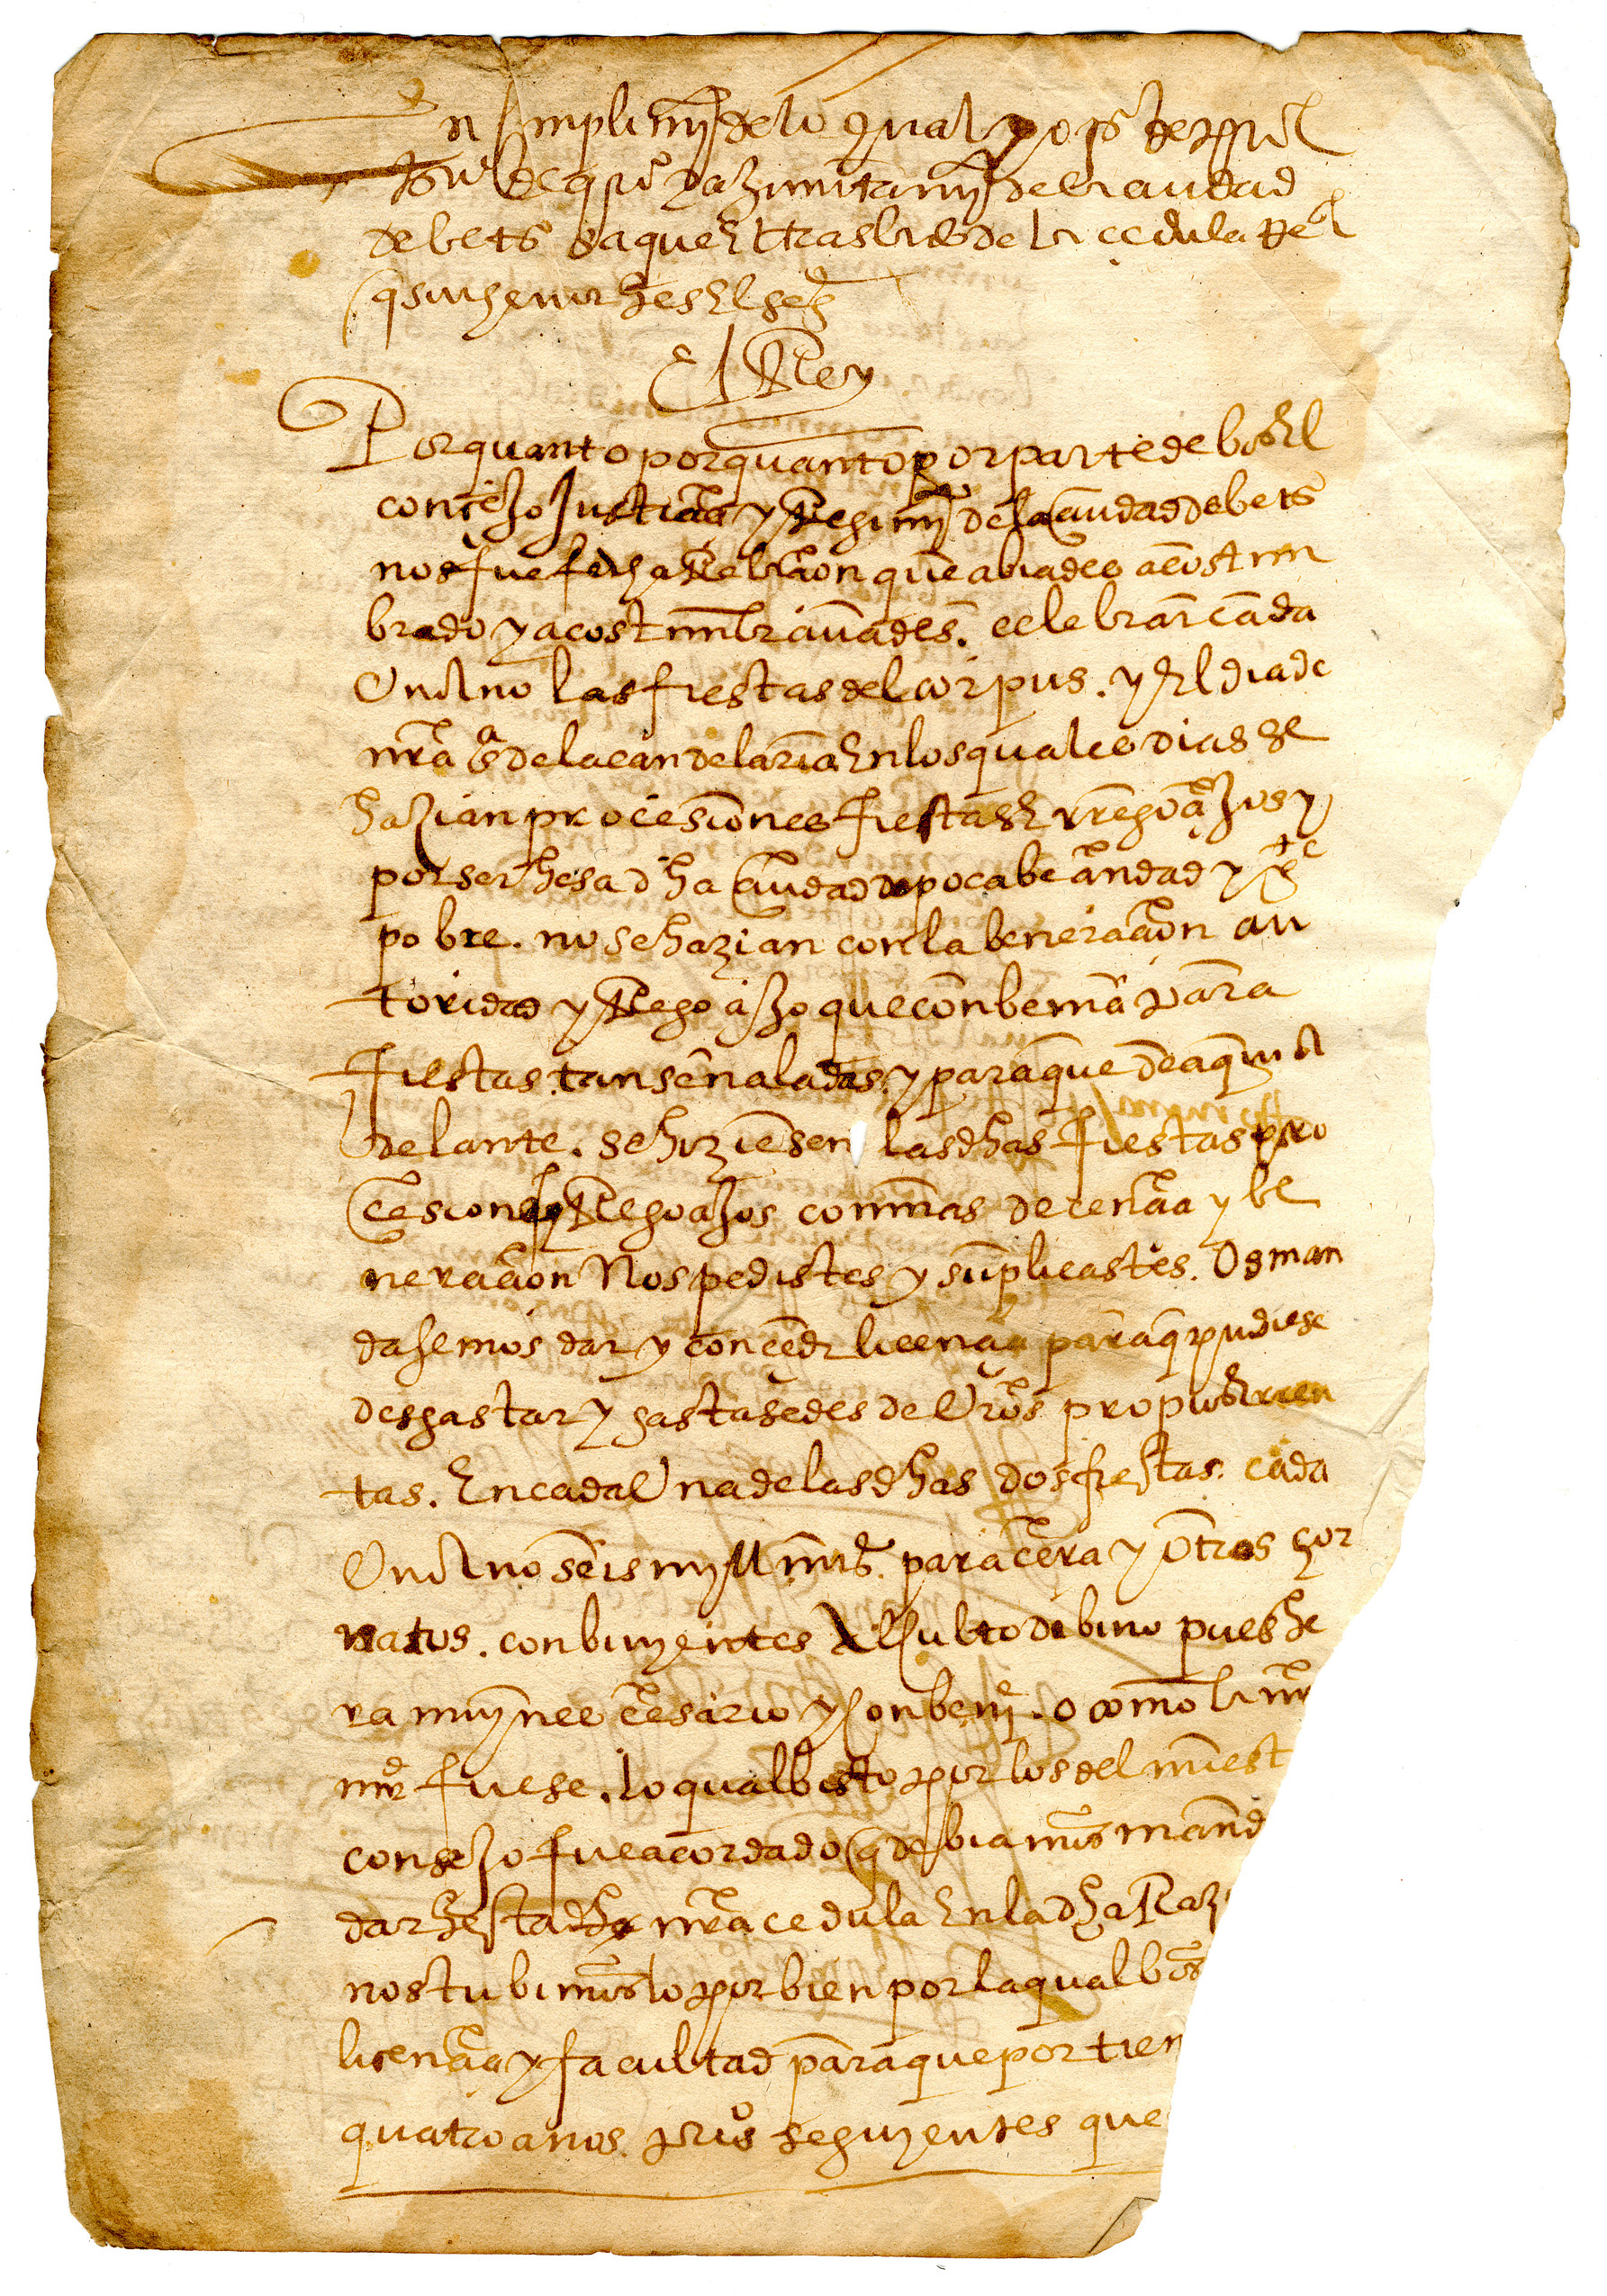 En cumplimi° de lo qual yo
de la ciudad
de bets saque el traslado de la cedula Real
que su thenor hes el sigte
El Rey
Por quanto por quanto por parte de bos el
conçejo Justicia y Regimi° de la ciudad de bets
nos fue fecha Relacion que abiades acostun
brado y acostumbravades. celebrar cada
Un año las fiestas del corpus. y el dia de
nra sª de la candelaria En los quales dias se
hazian procesiones fiestas E rregoçijos y
por ser hesa dha ciudad de poca becindad y
pobre. no se hazian con la beneracion au
toridad y Regoçijo que conbenia para
fiestas tan señaladas. y para que de aqui a
delante. se hiziesen las dhas fiestas pro
cesiones y Regoçijos con mas decencia y be
neracion Nos pedistes y suplicastes. Os man
dasemos dar y conceder licencia para q pudiese
des gastar y gastasedes de Vros propios E rren
tas. En cada Una de las dhas dos fiestas. cada
Un año seis mill mrs. para cera y otros hor
natos. conbinyentes Al culto dibino pues he
ra muy neecesario y conbeni°. o como la nra
mrd fuese. lo qual bisto por los del nuest
consejo fue acordado q debiamos mand
dar hesta dha nra cedula En la dha Raz
nos tubimoslo por bien por la qual bos
licencia y facultad para que por tien
quatro anos. prios seguyentes que